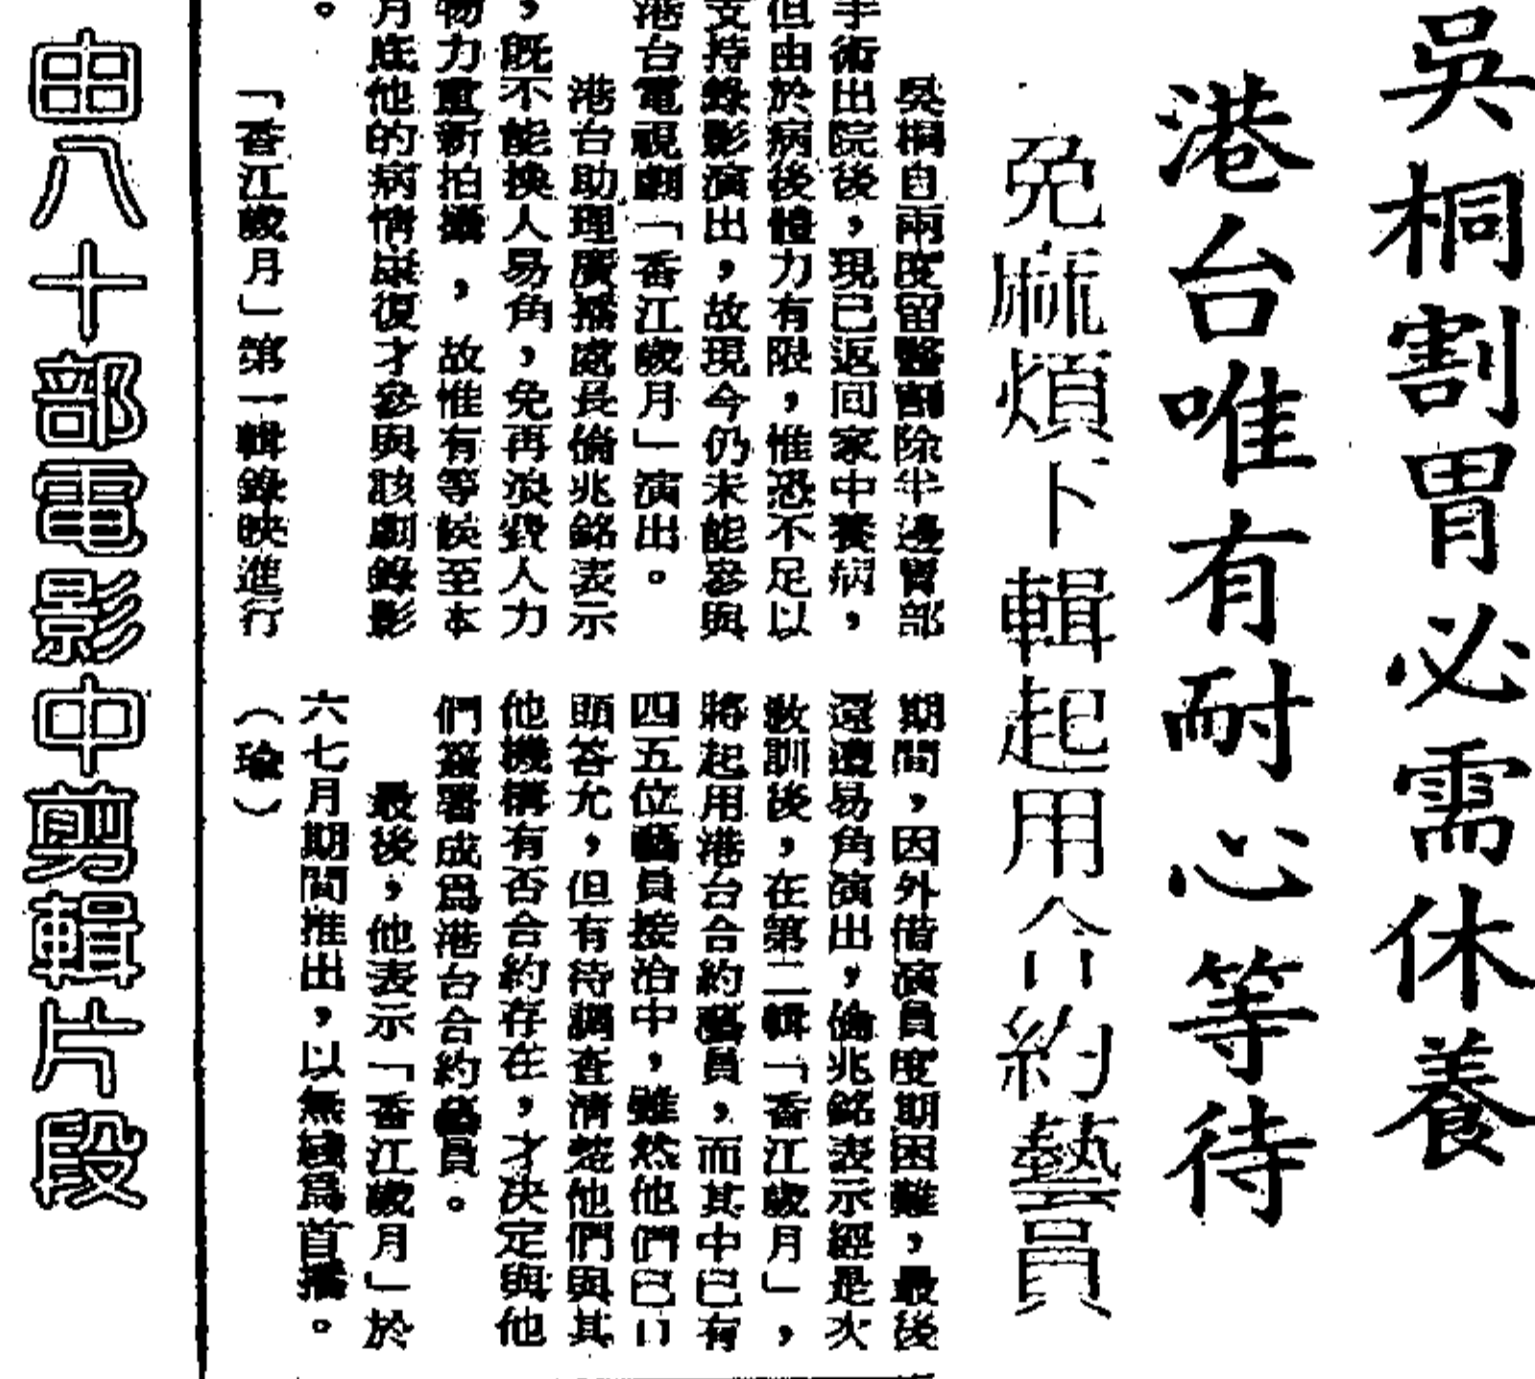 吳桐割胃必需休養
港台唯有耐心等待
免麻煩下輯起用合約藝員
吳桐自兩度留醫割除半邊胃部
手術出院後，現已返回家中養病，
但由於病後體力有限，惟恐不足以
支持錄影演出，故現今仍未能參與
港台電視劇「香江歲月」演出。
港台助理廣播處長倫兆銘表示
，既不能換人易角，免再浪費人力
物力重新拍攝，故惟有等候至本
月底他的病情康復才參與該劇錄影
。
「香江歲月」第一輯錄映進行
期間，因外借演員度期困難，最後
還遭易角演出，倫兆銘表示經是次
教訓後，在第二輯「香江歲月」，
將起用港台合約藝員，而其中已有
四五位藝員接洽中，雖然他們已口
頭答允，但有待調查清楚他們與其
他機構有否合約存在，才决定與他
們簽署成爲港台合約藝員。
最後，他表示「香江歲月」於
六七月期間推出，以無綫爲首播。
（瑜）
由八十部電影中剪輯片段